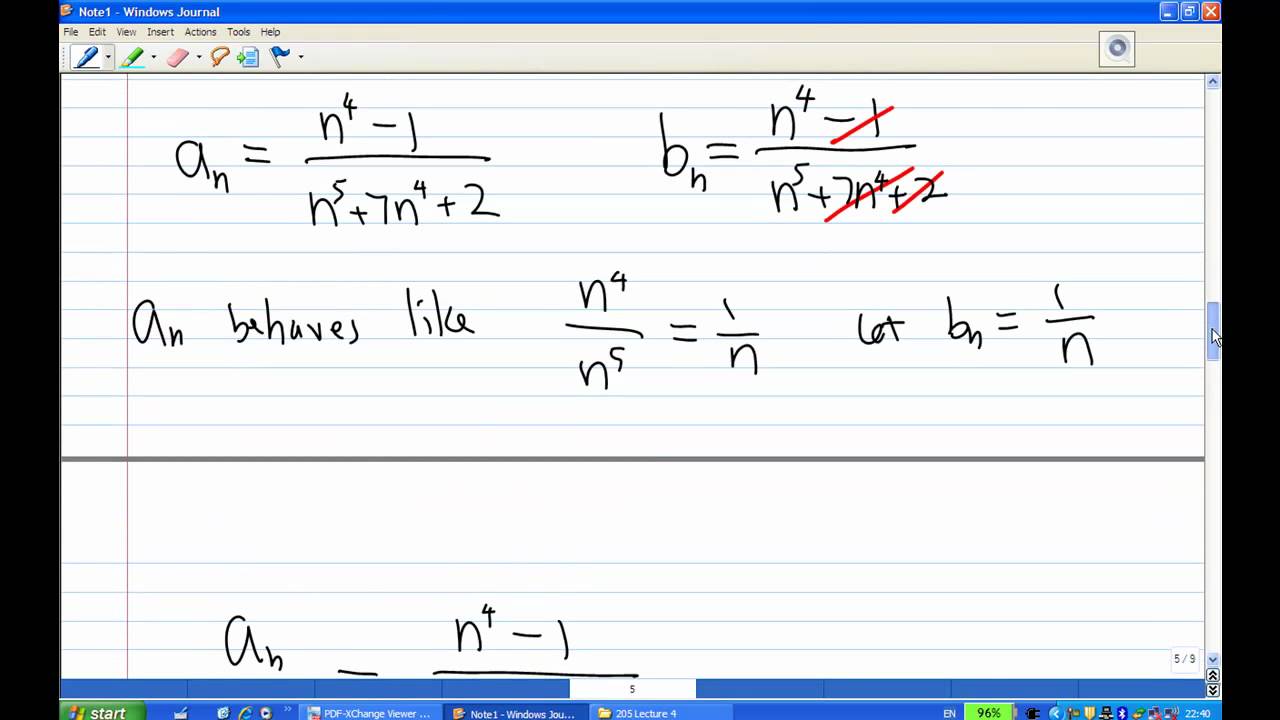 Note1 - Windows Journal
File Edit View Insert Actions Tools Help
aₙ = (n⁴ - 1)/(n⁵ + 7n⁴ + 2)    bₙ = (n⁴ - 1)/(n⁵ + 7n⁴ + 2)
aₙ behaves like n⁴/n⁵ = 1/n    let bₙ = 1/n
aₙ = n⁴ - 1
5 / 9
5
start PDF-XChange Viewer ... Note1 - Windows Jou... 205 Lecture 4 EN 96% 22:40